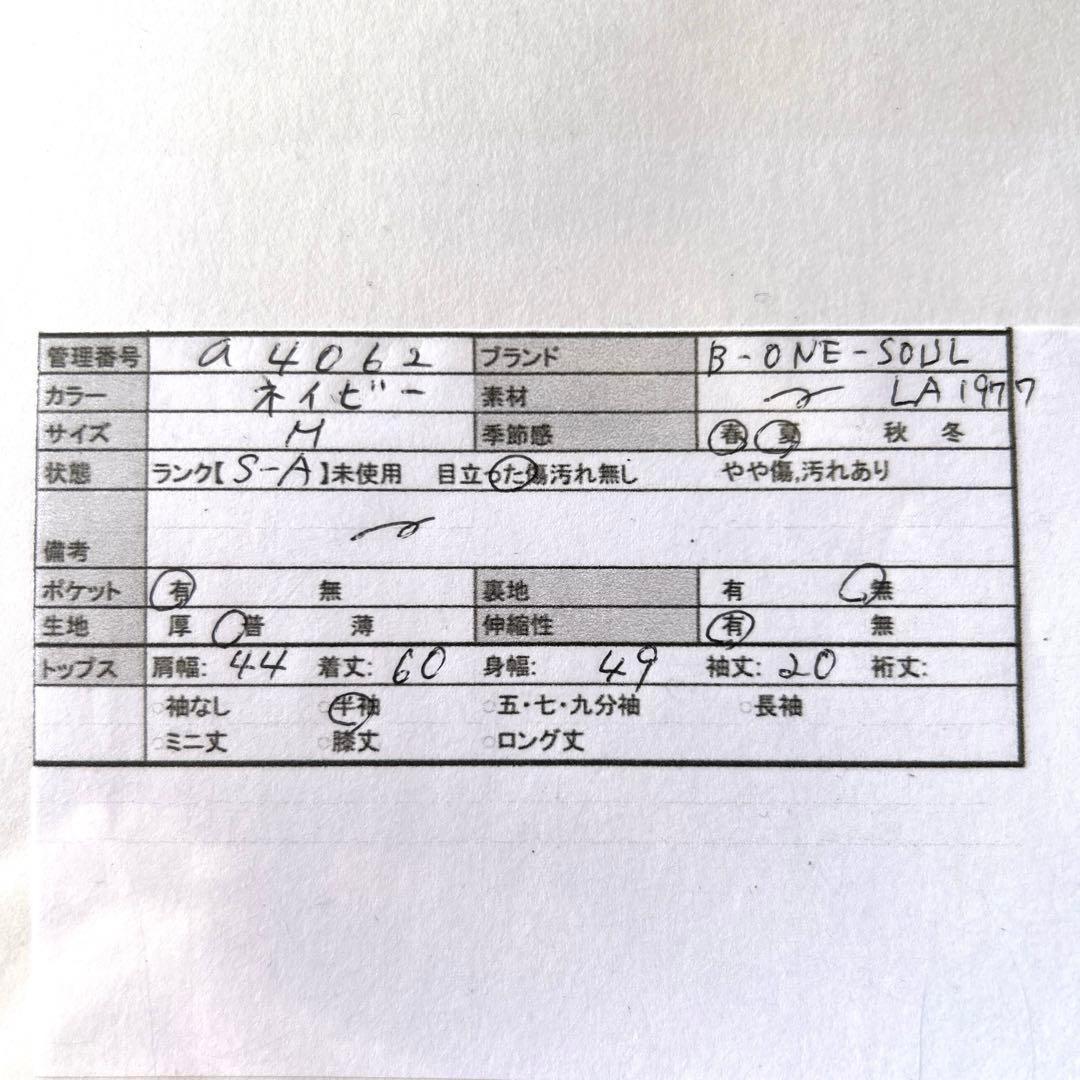 管理番号 a4062 ブランド B-ONE-SOUL
カラー ネイビー 素材 LA1977
サイズ M 季節感 春 夏 秋 冬
状態 ランク【S-A】未使用 目立った傷汚れ無し やや傷,汚れあり
備考
ポケット 有 無 裏地 有 無
生地 厚 普 薄 伸縮性 有 無
トップス 肩幅: 44 着丈: 60 身幅: 49 袖丈: 20 裄丈:
○袖なし ○半袖 ○五・七・九分袖 ○長袖
○ミニ丈 ○膝丈 ○ロング丈